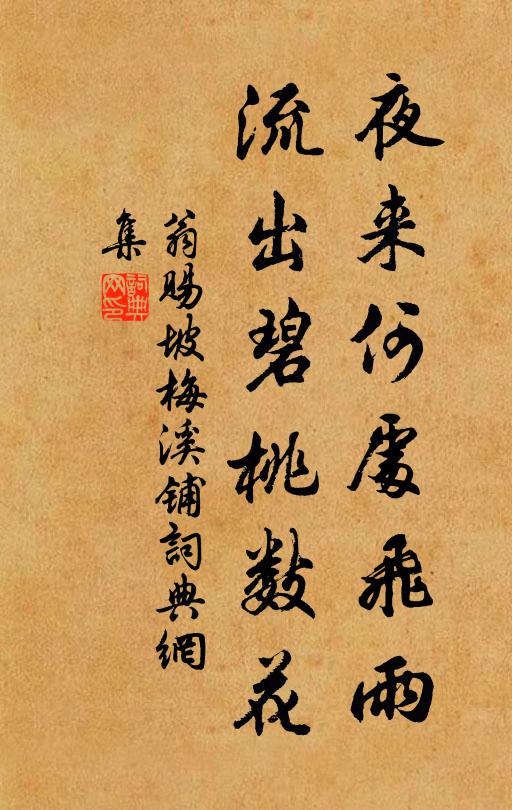 夜来何處飛雨
流出碧桃数花
翁賜坡梅溪鋪詞典網
集
詞典
网印